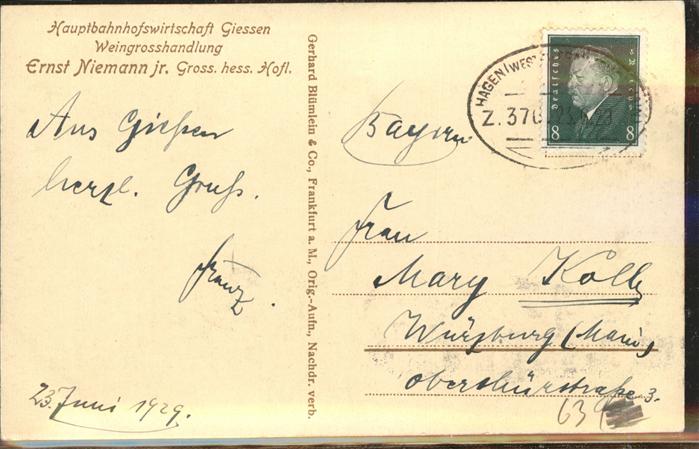 Hauptbahnhofswirtschaft Giessen
Weingrosshandlung
Ernst Niemann jr. Gross. hess. Hofl.
Aus Gießen
herzl. Gruß.
Franz.
23. Juni 1929.
Gerhard Blümlein & Co., Frankfurt a. M., Orig.-Aufn., Nachdr. verb.
HAGEN (WESTF)
Z. 370 23.6.29
Deutsches Reich
8 8
Bayern
Frau
Mary Kolb
Würzburg (Main)
oberthürstraße 3.
63